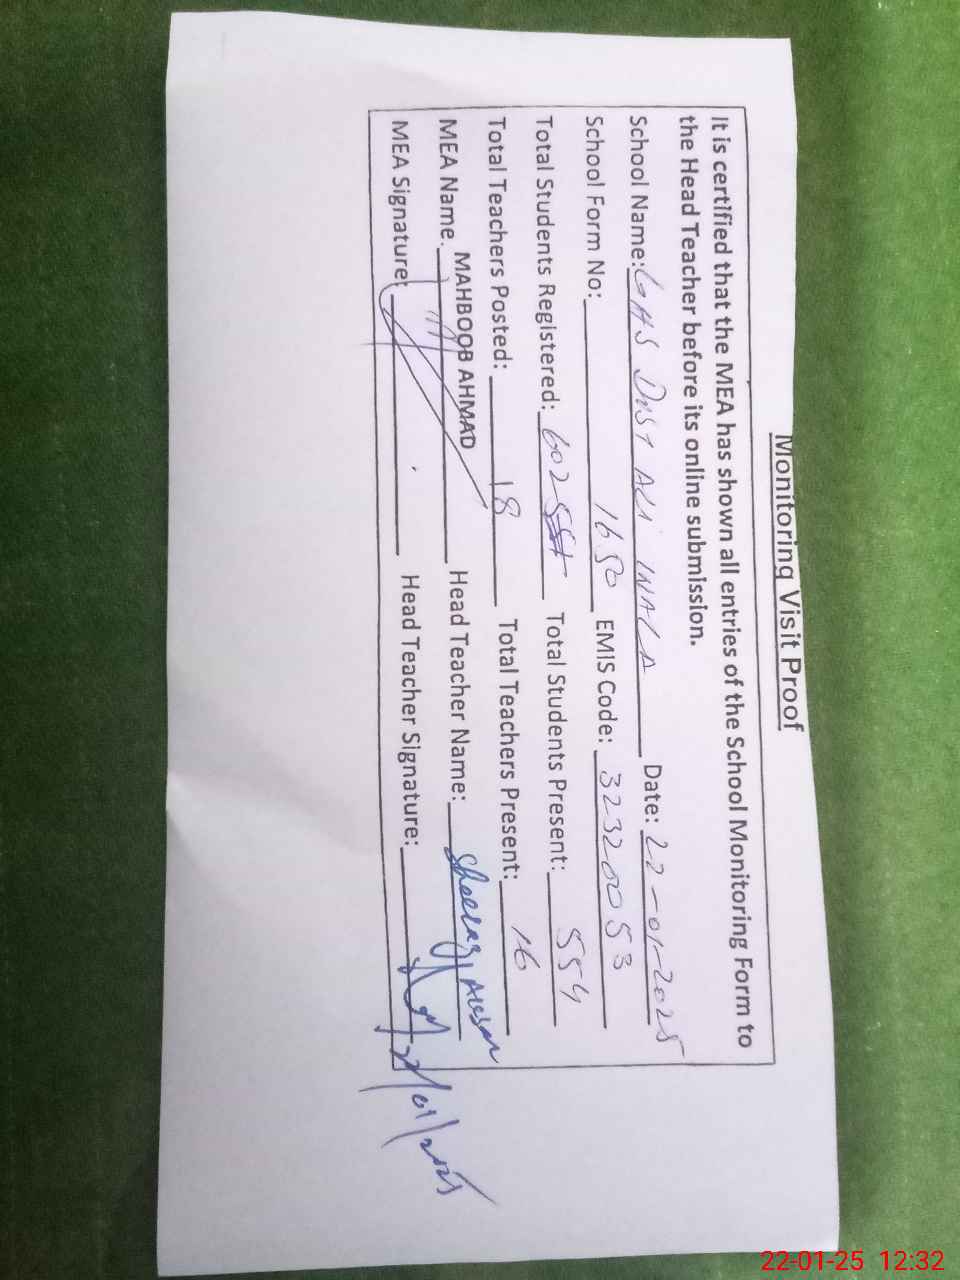 Monitoring Visit Proof
It is certified that the MEA has shown all entries of the School Monitoring Form to
the Head Teacher before its online submission.
School Name: GHS DOST ALI WALA Date: 22-01-2025
School Form No: 1650 EMIS Code: 32320053
Total Students Registered: 602 Total Students Present: 554
Total Teachers Posted: 18 Total Teachers Present: 16
MEA Name. MAHBOOB AHMAD Head Teacher Name: Sheeraz Ahsan
MEA Signature: Head Teacher Signature: 22/01/2025
22-01-25 12:32